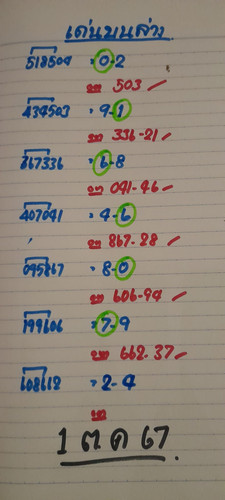 เด่นบนล่าง
518504 = 0-2
ออก 503
434503 = 9-1
ออก 336-21
867336 = 6-8
ออก 041-46
407041 = 4-6
ออก 867-28
095867 = 8-0
ออก 606-94
199606 = 7-9
ออก 662-37
608662 = 2-4
ออก
1 ตค 67